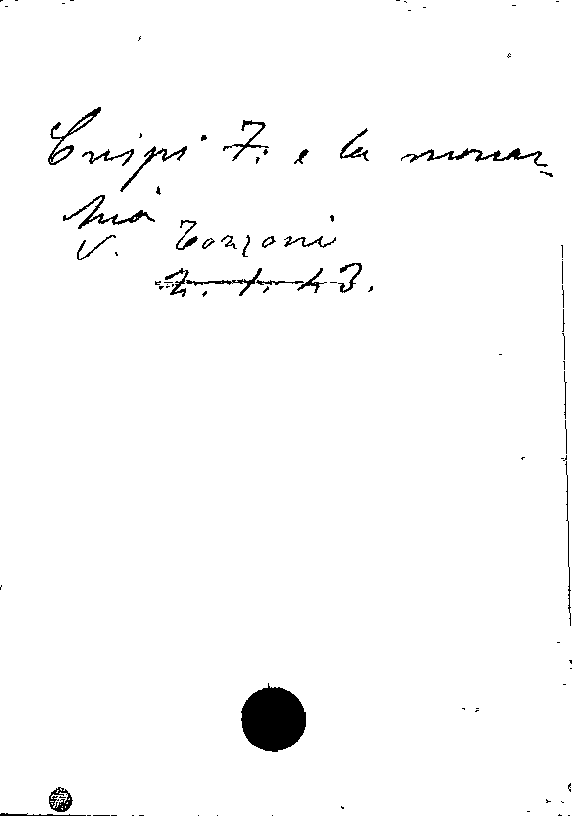 Crispi F. e la monar-
chia
V. Tonzoni
2. 1. 43.